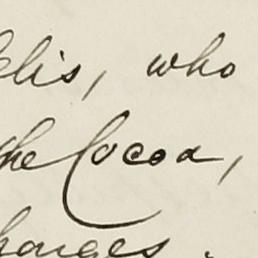 elis, who
the Cocoa,
harges.